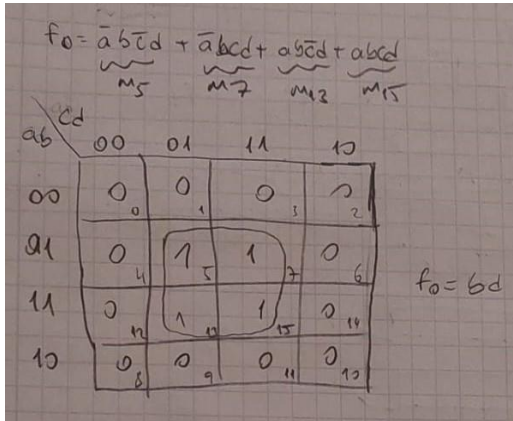 f₀ = a̅bc̅d + a̅bcd + abc̅d + abcd
m₅ m₇ m₁₃ m₁₅
ab \ cd 00 01 11 10
00 0₀ 0₁ 0₃ 0₂
01 0₄ 1₅ 1₇ 0₆
11 0₁₂ 1₁₃ 1₁₅ 0₁₄
10 0₈ 0₉ 0₁₁ 0₁₀
f₀ = bd